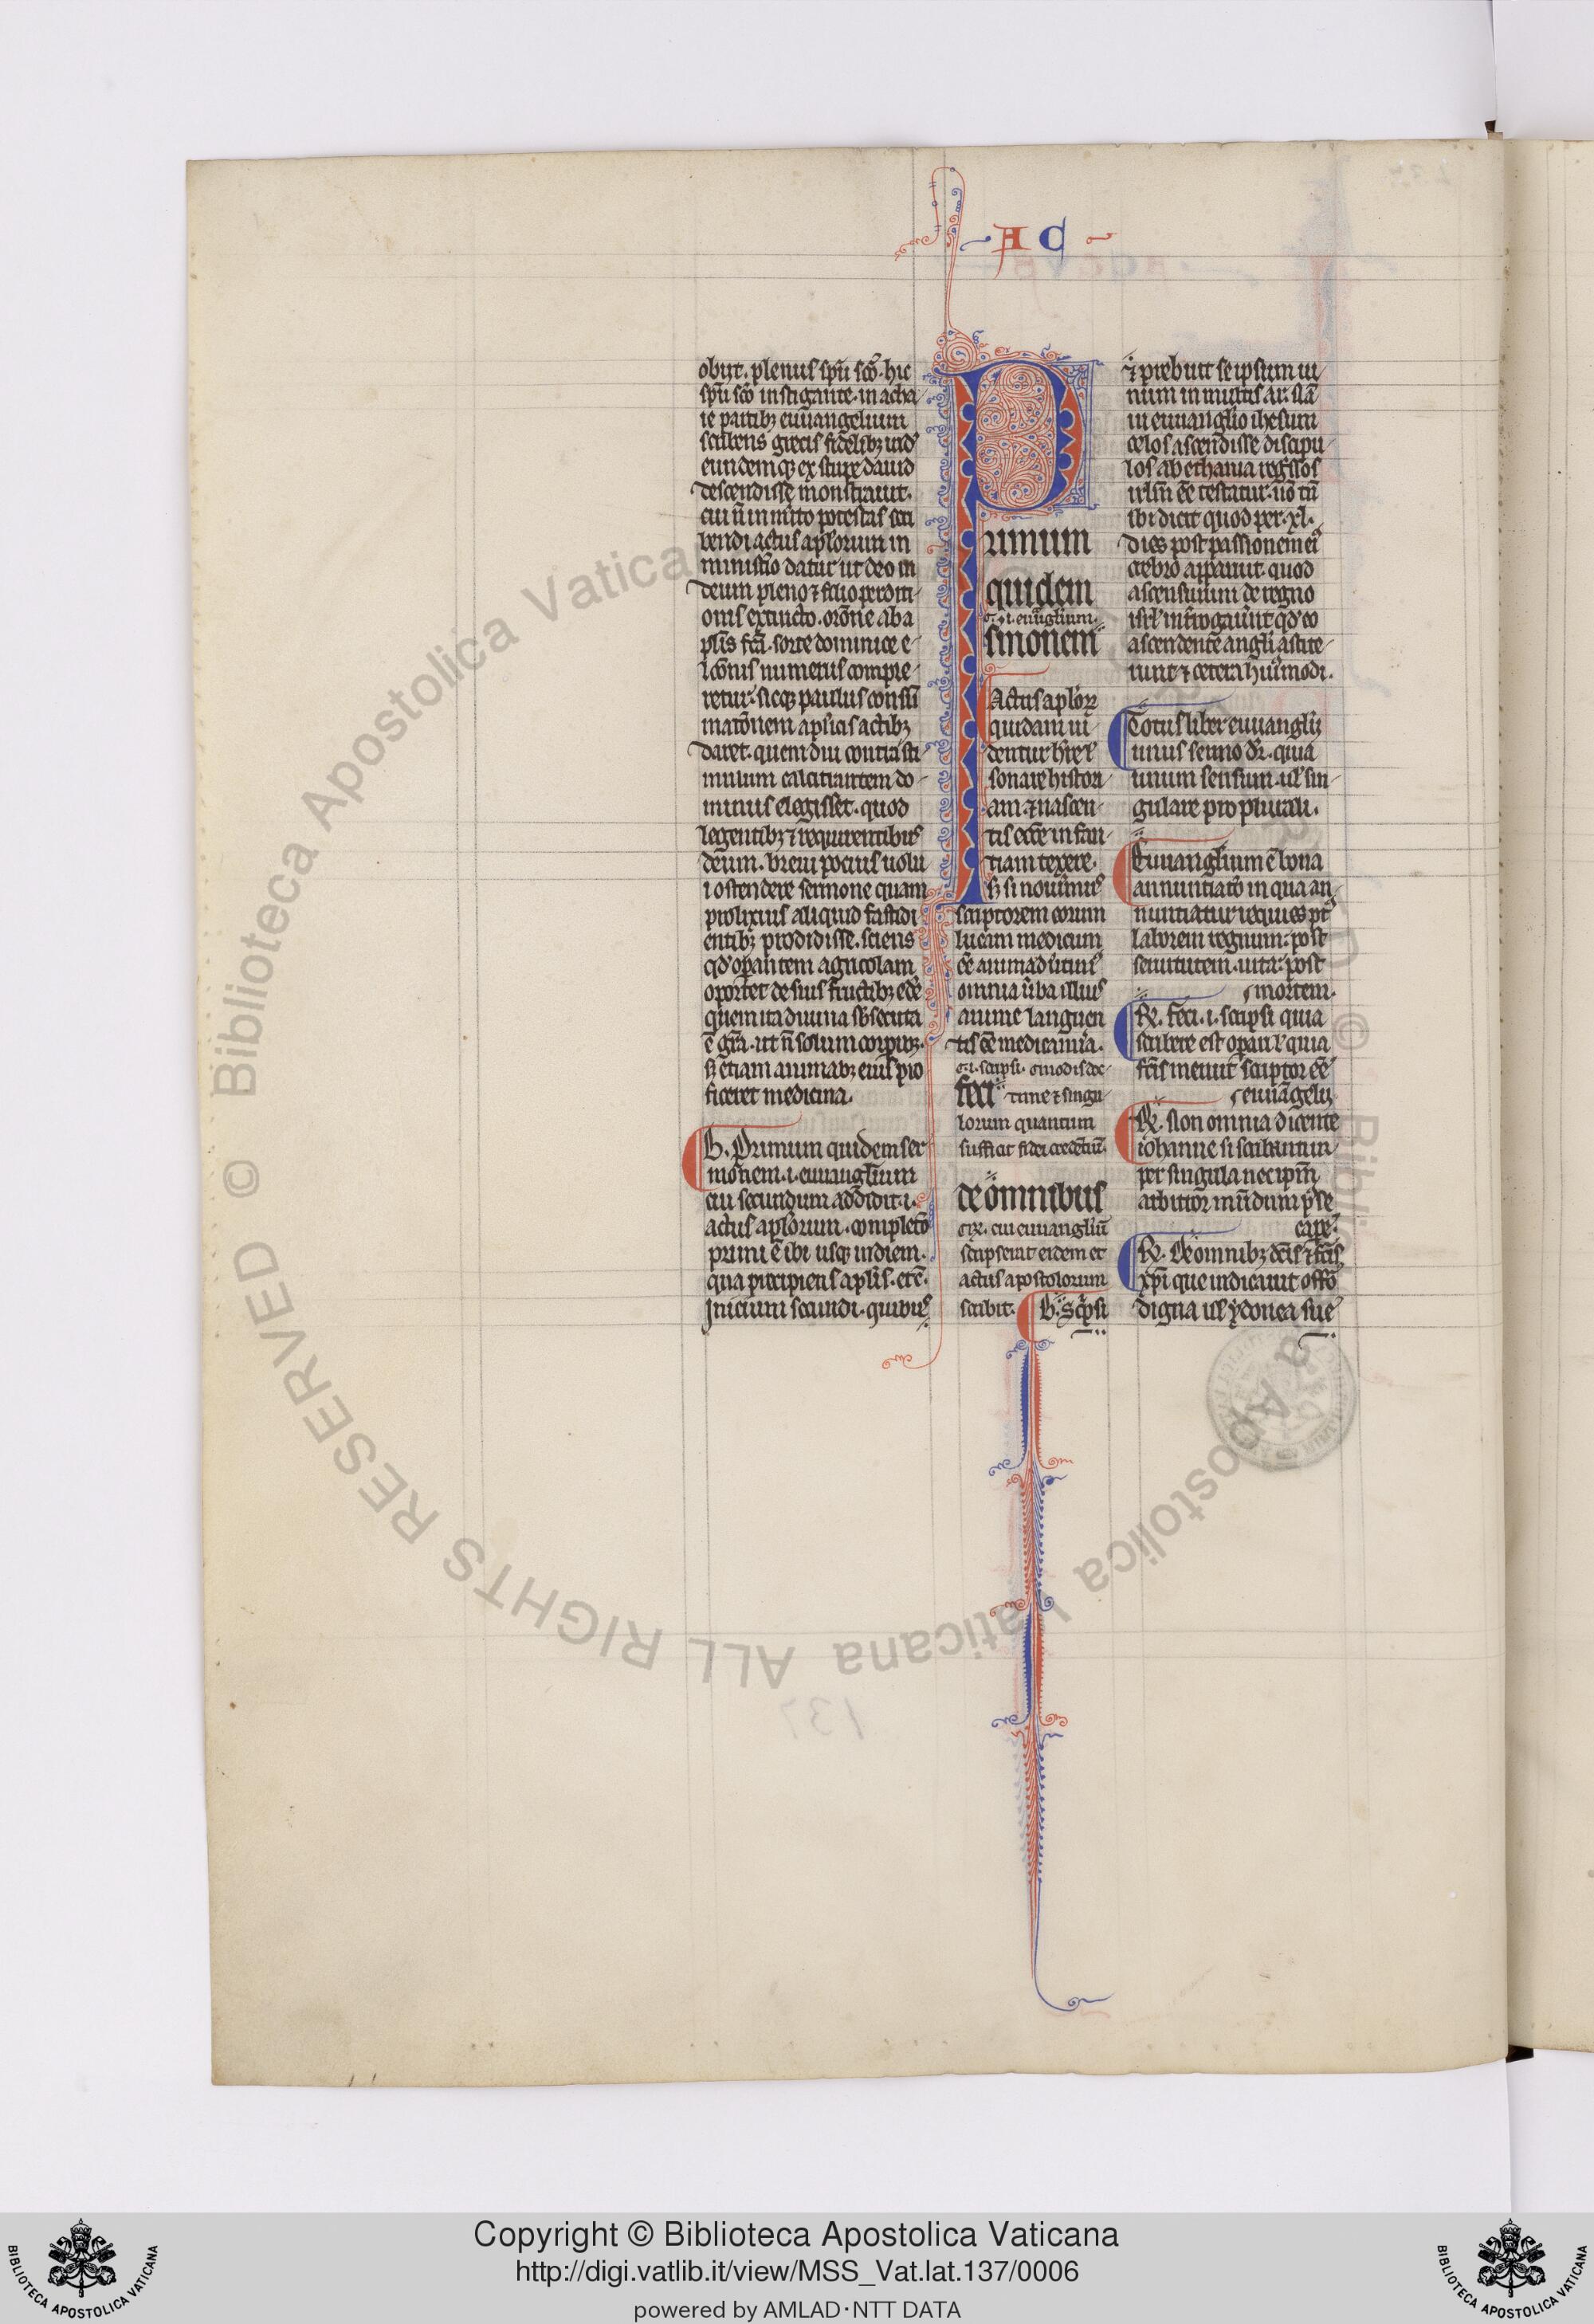 A C
obiit. plenus spū sc̄o. hic
spū sc̄o instigante. in acha
ie partibꝫ euuangelium
scribens grecis fidelibꝫ
eundemqꝫ ex stirpe dauid
descendisse monstrauit.
cui ñ in mīto potestas scri
bendi actus aplorum in
ministio datur ut deo in
deum pleno ⁊ filio perditi
onis extincto. orōne ab a
plīs fcā. sorte dominice e
lcōnis numerus comple
retur. sicqꝫ paulus consū
matōnem aplicis actibꝫ
daret. quem diu contra sti
mulum calcitrantem do
minus elegisset. quod
legentibꝫ ⁊ requirentibus
deum. breui pocius uolu
i ostendere sermone quam
prolixius aliquid fastidi
entibꝫ prodidisse. sciens
qd' opantem agricolam
oportet de suis fructibꝫ ede
quem ita diuina sbsecuta
ē grā. ut ñ solum corpibꝫ.
sꝫ etiam animabꝫ eius pro
ficeret medicina.
B. Primum quidem ser
monem .i. euuanglium
cui secundum addidit .i.
actus aplorum. completō
primi ē ibi usqꝫ in diem.
qua precipiens aplīs. etc̄.
Inicium secundi. quibus
P
rimum
quidem
.i. euuanglium.
smonem
Actus aplorꝫ
quidam ui
dentur
sonare histori
am. ⁊ nascen
tis ecc̄e infan
tiam texere.
sꝫ si nouimus
scriptorem eorum
lucam medicum
ēē animaduītimꝰ
omnia ūba illius
anime languen
tis ēē medicamīa.
.i. scripsi.
feci
tune ⁊ singu
lorum quantum
sufficiat fidei credētiū.
de omnibus
cui euuangliū
scripserat eidem et
actus apostolorum
scribit. B. Scpsi
⁊ prebuit se ipsum ui
uum in multis ar. nā
in euuanglio ihesum
celos ascendisse discipu
los a bethania regssos
irlm̄ ēē testatur. nō tn̄
ibi dicit quod per .xl.
dies post passionem ei
crebro apparuit. quod
ascensurum de regno
isrl' introgauint qd' eo
ascendente angli astite
runt ⁊ cetera huīmodi.
Totus liber euuanglij
unus sermo dr̄. quia
unum sensum. ul' sin
gulare pro plurali.
Euuanglium ē bona
annuntiatō in qua an
nuntiatur requies pt
laborem regnum: post
seruitutem. uita: post
mortem.
R. feci .i. scripsi quia
scribere est opari l' quia
fcis meruit scriptor ēē
euuāgelij
R. Non omnia dicente
iohanne si scribantur
per singula nec ipm̄
arbitror mūdum posse
cape.
R. De omnibꝫ dcis ⁊ fcis
xp̄i que indicauit offō
digna ul' ydonea sue
137
Copyright © Biblioteca Apostolica Vaticana
http://digi.vatlib.it/view/MSS_Vat.lat.137/0006
powered by AMLAD·NTT DATA
BIBLIOTECA APOSTOLICA VATICANA
BIBLIOTECA APOSTOLICA VATICANA
© Biblioteca Apostolica Vaticana ALL RIGHTS RESERVED